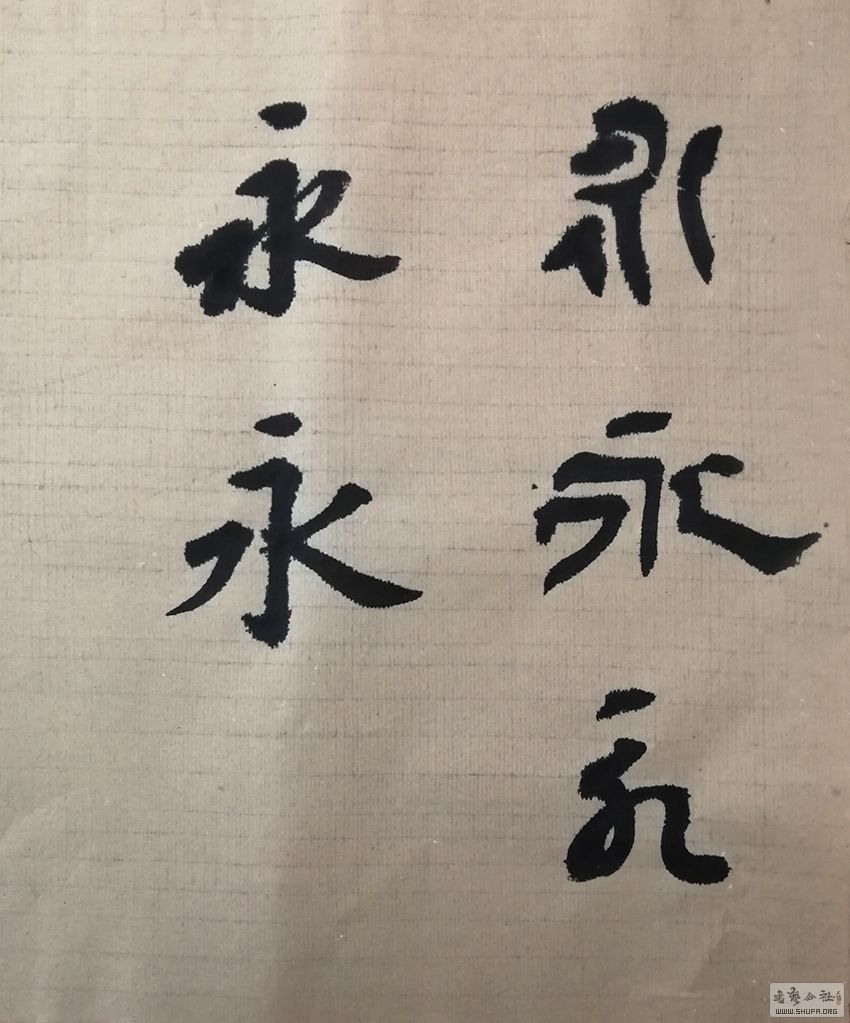 永永永
永永
书艺公社
WWW.SHUFA.ORG